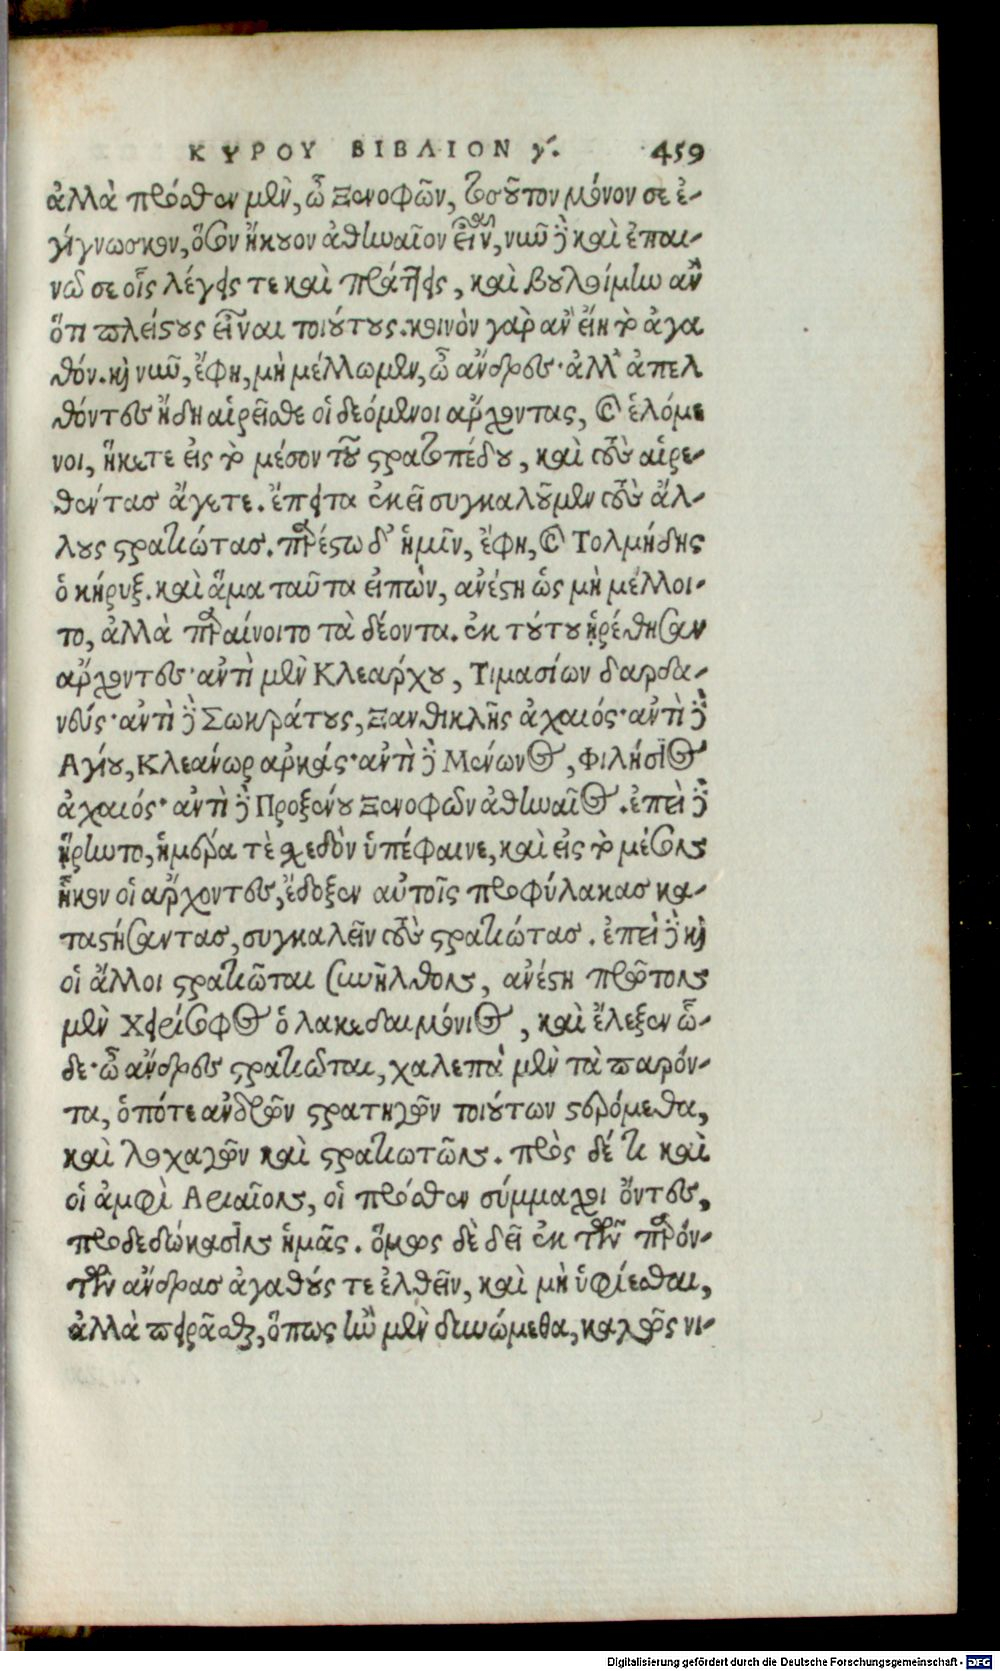 ΚΥΡΟΥ ΒΙΒΛΙΟΝ γ´. 459
ἀλλὰ πρόσθεν μὲν, ὦ Ξενοφῶν, τοσοῦτον μόνον σε ἐ-
γίγνωσκον, ὅσον ἤκουον ἀθηναῖον εἶναι, νῦν δὲ καὶ ἐπαι-
νῶ σε οἷς λέγεις τε καὶ πράττεις, καὶ βουλοίμην ἂν
ὅτι πλείστους εἶναι τοιούτους. κοινὸν γὰρ ἂν εἴη τὸ ἀγα
θόν. καὶ νῦν, ἔφη, μὴ μέλλωμεν, ὦ ἄνδρες· ἀλλ' ἀπελ
θόντες ἤδη αἱρεῖσθε οἱ δεόμενοι ἄρχοντας, καὶ ἑλόμε
νοι, ἥκετε εἰς τὸ μέσον τοῦ στρατοπέδου, καὶ τοὺς αἱρε-
θέντας ἄγετε. ἔπειτα ἐκεῖ συγκαλοῦμεν τοὺς ἄλ-
λους στρατιώτας. παρέστω δ' ἡμῖν, ἔφη, καὶ Τολμήδης
ὁ κήρυξ. καὶ ἅμα ταῦτα εἰπὼν, ἀνέστη ὡς μὴ μέλλοι-
το, ἀλλὰ περαίνοιτο τὰ δέοντα. ἐκ τούτου ᾑρέθησαν
ἄρχοντες· ἀντὶ μὲν Κλεάρχου, Τιμασίων δαρδα-
νεύς· ἀντὶ δὲ Σωκράτους, Ξανθικλῆς ἀχαιός· ἀντὶ δὲ
Αγίου, Κλεάνωρ αρκάς· ἀντὶ δὲ Μένωνος, Φιλήσιος
ἀχαιός· ἀντὶ δὲ Προξένου Ξενοφῶν ἀθηναῖος. ἐπεὶ δὲ
ᾕρηντο, ἡμέρα τὲ σχεδὸν ὑπέφαινε, καὶ εἰς τὸ μέσον
ἧκον οἱ ἄρχοντες, ἔδοξεν αὐτοῖς προφύλακας κα-
ταστήσαντας, συγκαλεῖν τοὺς στρατιώτας. ἐπεὶ δὲ καὶ
οἱ ἄλλοι στρατιῶται συνῆλθον, ἀνέστη πρῶτον
μὲν Χειρίσοφος ὁ λακεδαιμόνιος, καὶ ἔλεξεν ὧ-
δε· ὦ ἄνδρες στρατιῶται, χαλεπὰ μὲν τὰ παρόν-
τα, ὁπότε ἀνδρῶν στρατηγῶν τοιούτων στερόμεθα,
καὶ λοχαγῶν καὶ στρατιωτῶν. πρὸς δέ τι καὶ
οἱ ἀμφὶ Αριαῖον, οἱ πρόσθεν σύμμαχοι ὄντες,
προδεδώκασιν ἡμᾶς. ὅμως δὲ δεῖ ἐκ τῶν παρόν-
των ἄνδρας ἀγαθούς τε ἐλθεῖν, καὶ μὴ ὑφίεσθαι,
ἀλλὰ πειρᾶσθαι, ὅπως ἢν μὲν δυνώμεθα, καλῶς νι-
Digitalisierung gefördert durch die Deutsche Forschungsgemeinschaft - DFG